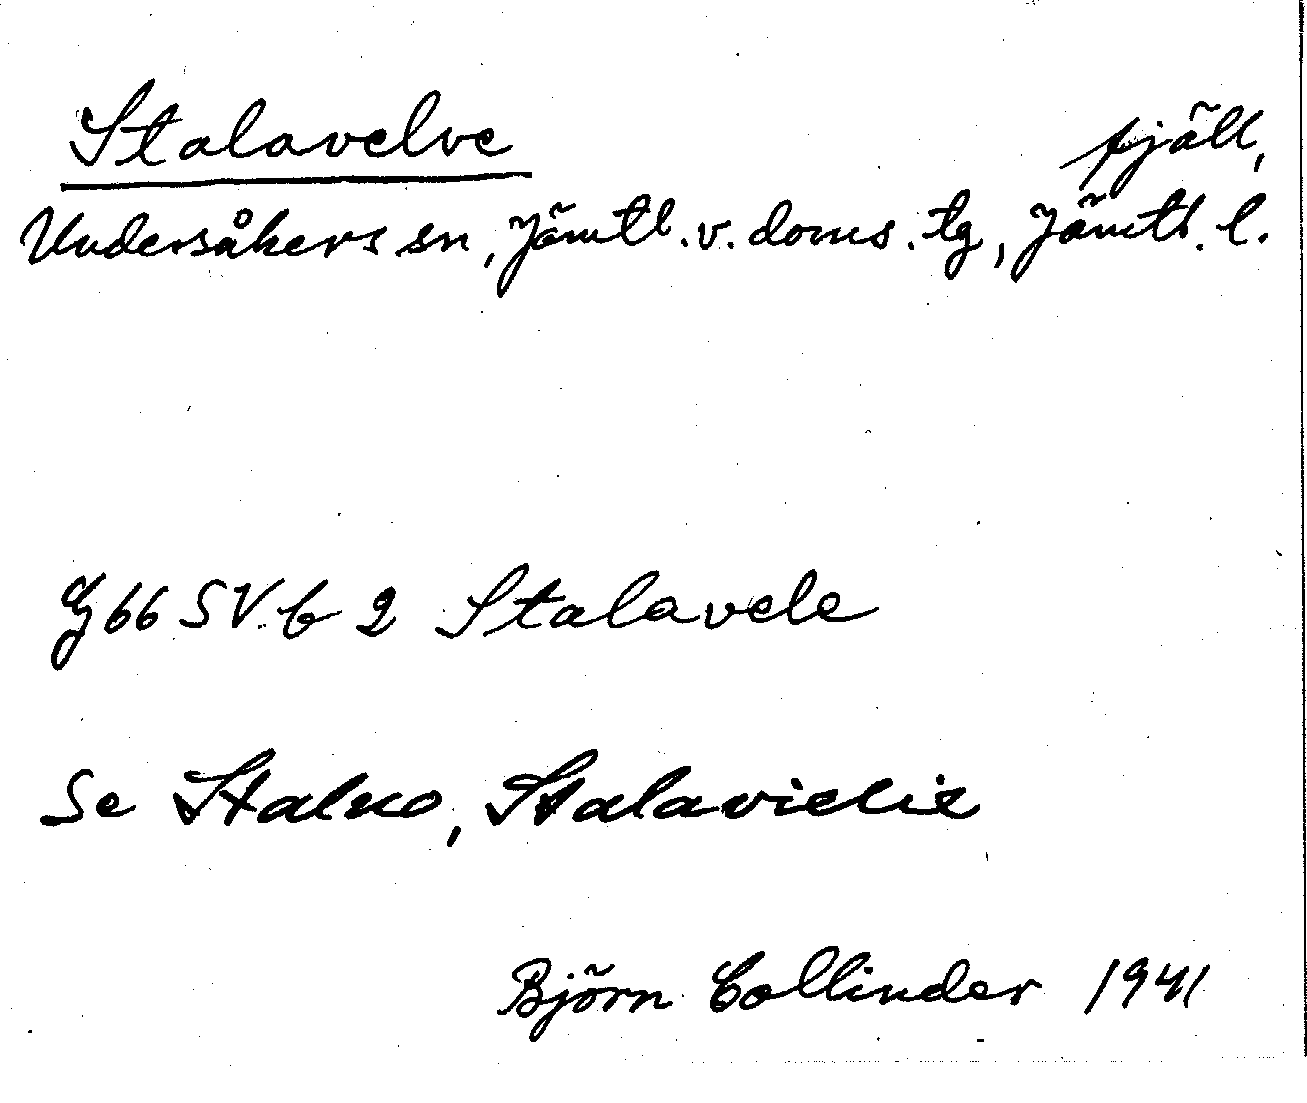 Stalavelve fjäll,
Undersåkers sn, Jämtl. v. doms. tg, Jämtl. l.
G 66 SV b 2 Stalavele
Se Stalko, Stalavielie
Björn Collinder 1941